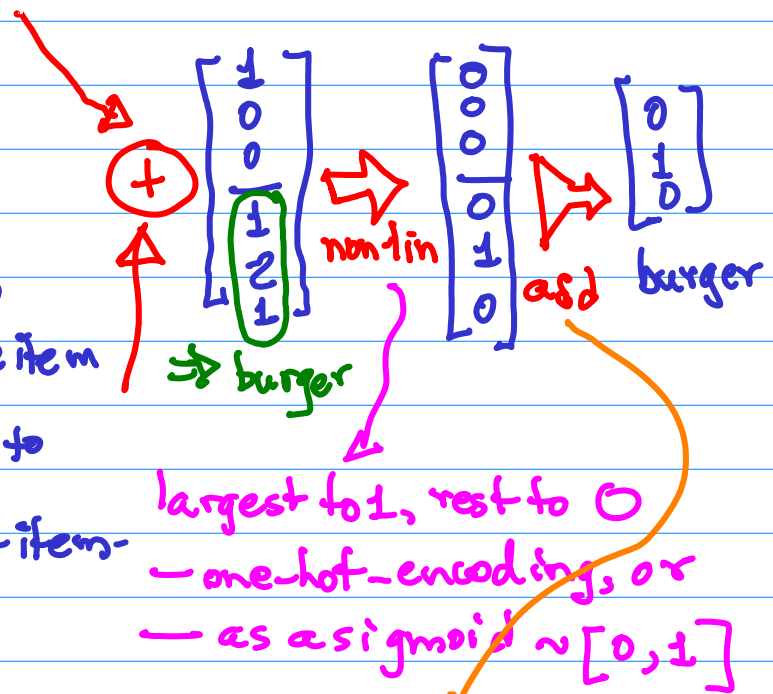 +
[1 0 0 | 1 2 1]
nonlin
[0 0 0 | 0 1 0]
add
[0 1 0]
burger
⇒ burger
item
to
-item-
largest to 1, rest to 0
— one-hot-encoding, or
— as a sigmoid ~ [0, 1]